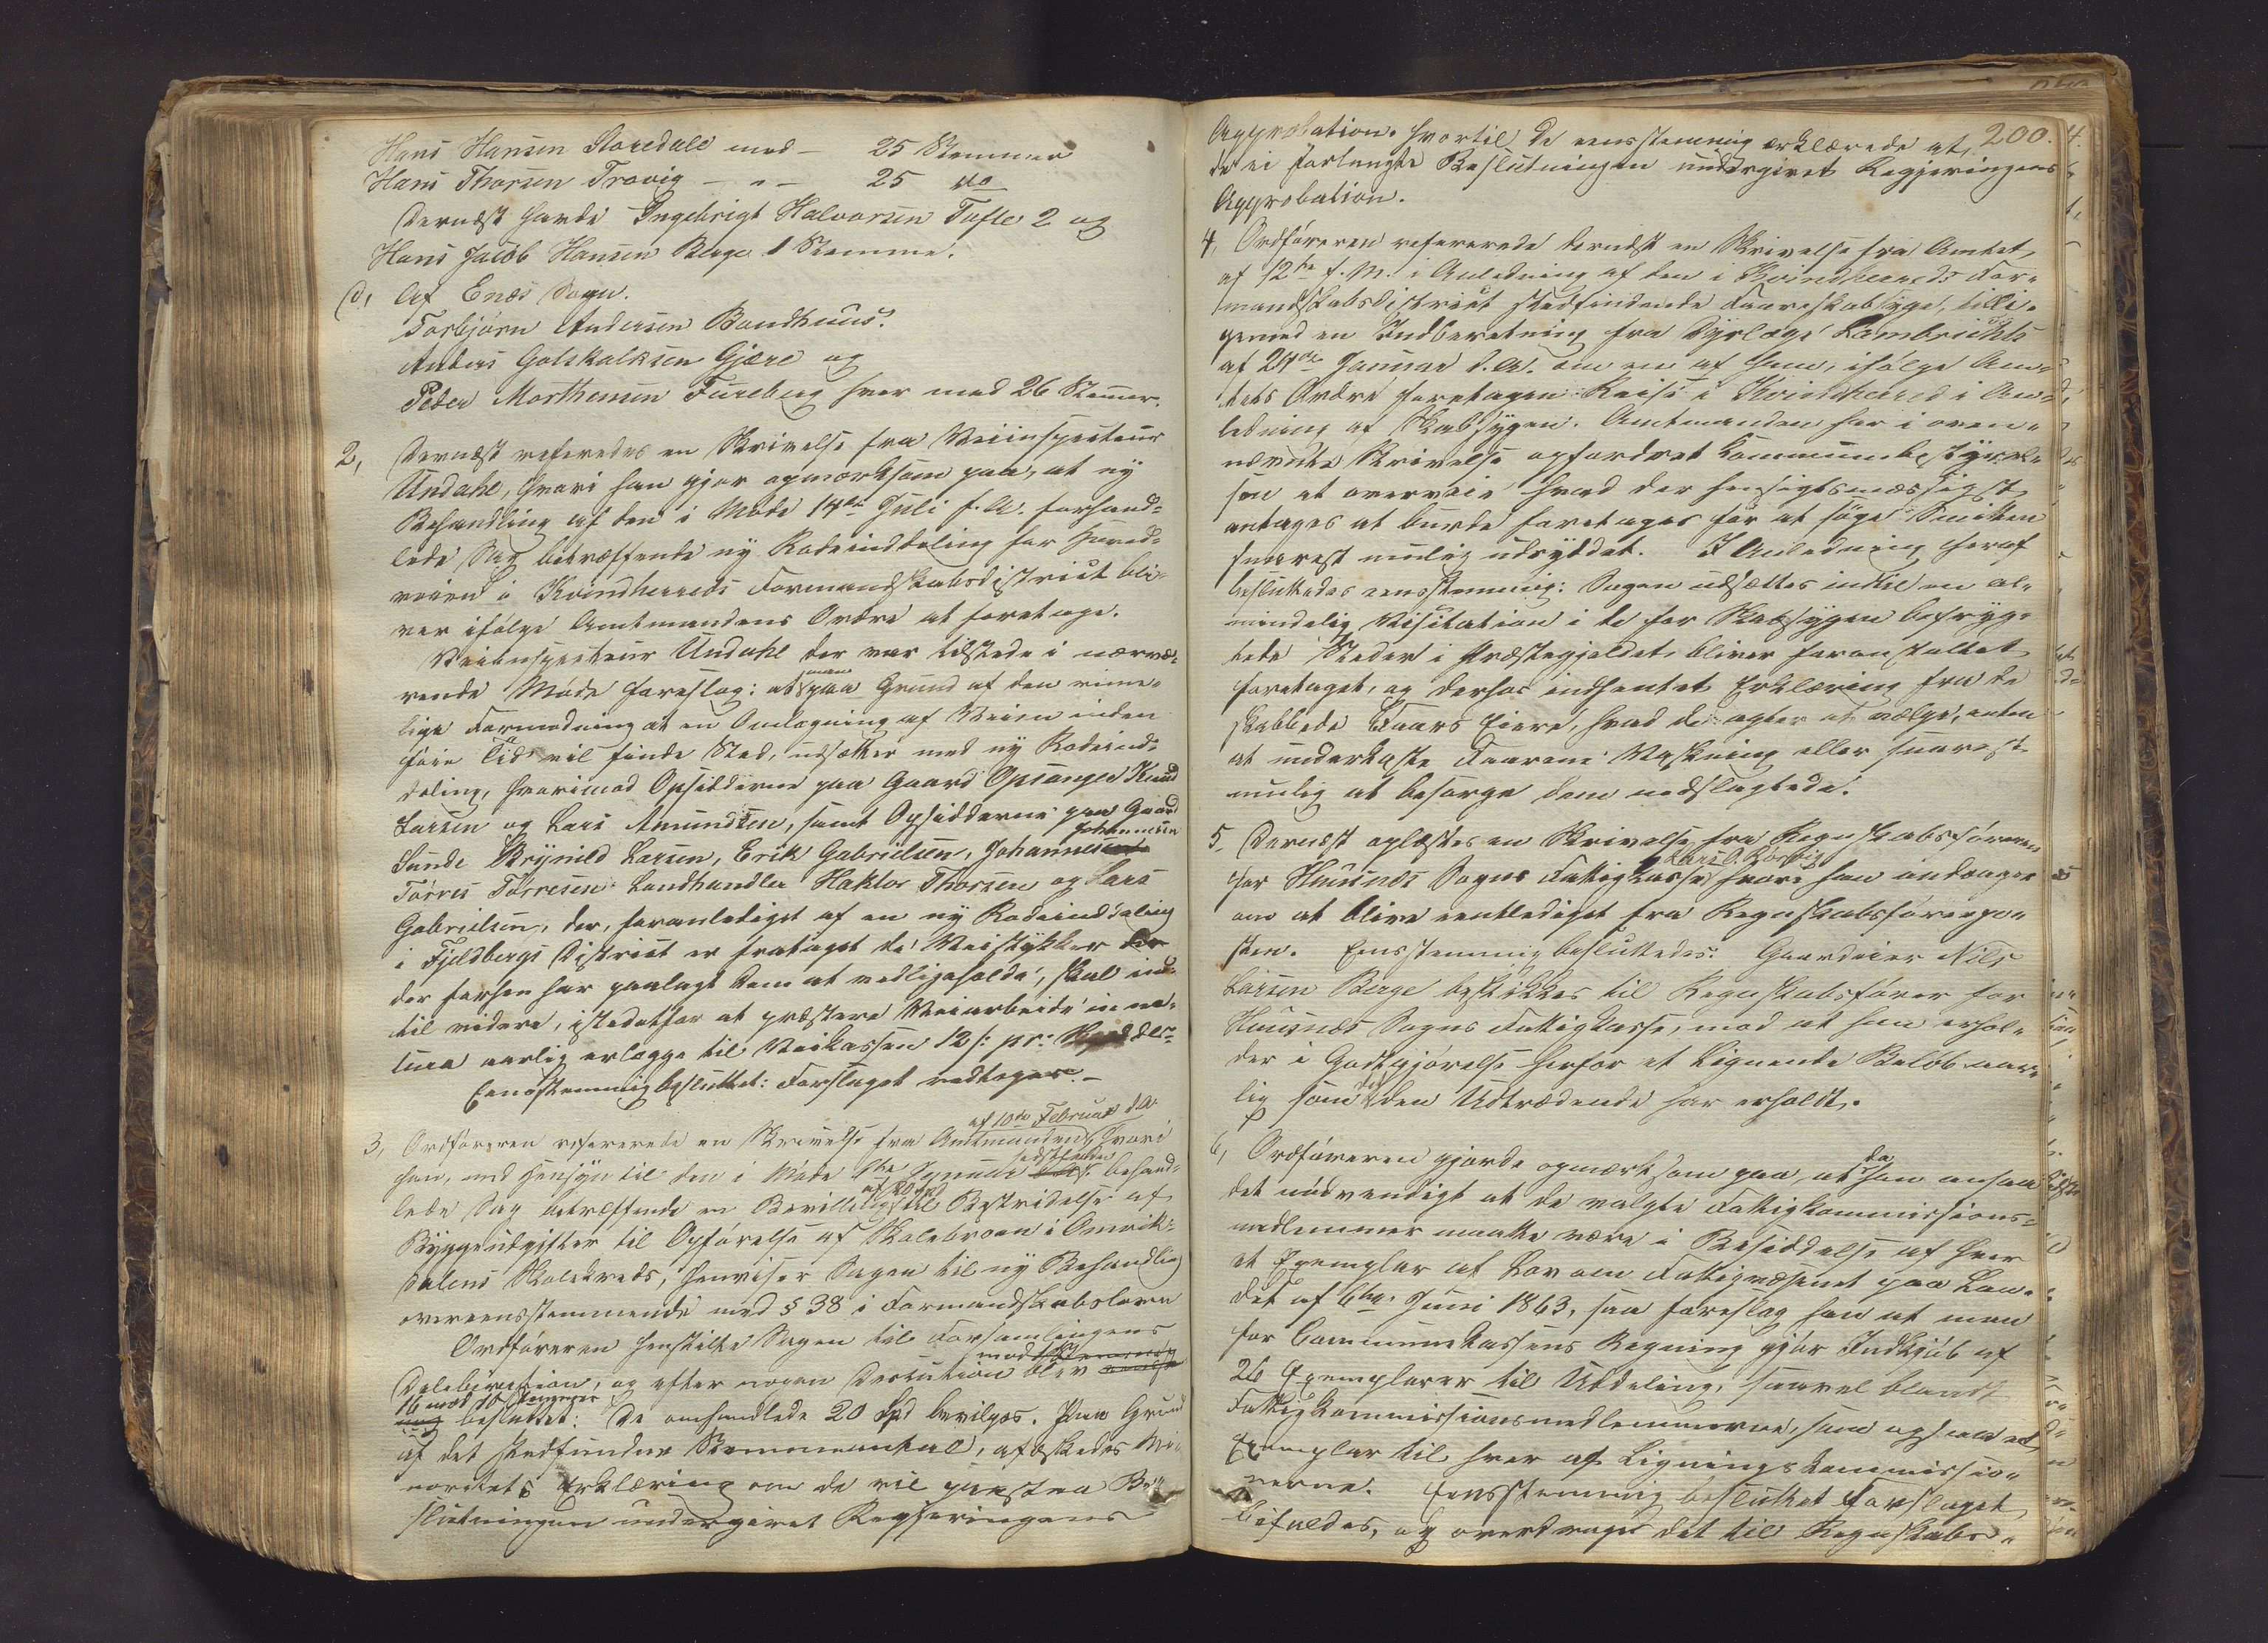 Hans Hansen Storedale med – 25 Stemmer
Hans Thorsen Trovig – " – 25 do
Dernæst havde Ingebrigt Halvorsen Tofte 2 og
Hans Jacob Hansen Berge 1 Stemme.
d, Af Enæs Sogn.
Torbjørn Andersen Bondhuus.
Anders Gotskalksen Gjære og
Peder Morthensen Fureberg hver med 26 Stemmer.
2, Dernæst refereredes en Skrivelse fra Veiinspecteur
Undahl, hvori han gjør opmærksom paa, at ny
Behandling af den i Møde 14de Juli f. A. forhand-
lede Sag betræffende ny Rodeinddeling for Hoved-
veien i Kvindherreds Formandskabsdistrict bli-
ver ifølge Amtmandens Ordre at foretage.
Veiinspecteur Undahl der var tilstede i nærvæ-
rende Møde foreslog: at man paa Grund af den rime-
lige Formodning at en Omlægning af Veien inden
føie Tid vil finde Sted, udsætter med ny Rodeind-
deling, hvorimod Opsidderne paa Gaard Opsanger Knud
Larsen og Lars Amundsen, samt Opsidderne paa Gaard
Sunde Brynild Larsen, Erik Gabrielsen, Johannes Johannesen
Tørres Tørresen Landhandler Haktor Thorsen og Lars
Gabrielsen, der, foranlediget af en ny Rodeinddeling
i Fjeldbergs District er frataget de Veistykker der
der forhen har paalagt dem at vedligeholde, skal ind-
til videre, istedetfor at præstere Veiarbeide in na-
tura aarlig erlægge til Veikassen 12 s: pr:
Eenstemmig besluttet: Forslaget vedtages. –
3, Ordføreren refererede en Skrivelse fra Amtmanden af 10de Februar d. A. hvori
han, med Hensyn til den i Møde Januar sidstleden behand-
lede Sag betræffende en Bevilling af 20 Spd til Bestridelse af
Byggeudgifter til Opførelse af Skolebroen i Omvik-
dalens Skolekreds, henviser Sagen til ny Behandling
overeensstemmende med § 38 i Formandskabsloven
Ordføreren henstilte Sagen til Forsamlingens
Deleberation, og efter nogen Discution blev
16 mod 10 Stemmer besluttet: De omhandlede 20 Spd bevilges. Paa Grund
af det stedfundne Stemmeantal, afæskedes Mi-
noritets Erklæring om de vil paastaa Be-
slutningen undergivet Regjeringens
200.
Approbation. hvortil de eensstemmig erklærede at,
de ei forlangte Beslutningen undergivet Regjeringens
Approbation.
4, Ordføreren refererede dernæst en Skrivelse fra Amtet,
af 12te f. M. i Anledning af den i Kvindherreds For-
mandskabsdistrict stedfindende Faareskabsyge, tilli-
gemed en Indberetning fra Dyrlæge Lambrichts
af 24de Januar d. A. om en af ham, ifølge Am-
tets Ordre foretagen Reise i Kvindherred i An-
ledning af Skabsygen. Amtmanden har i oven-
nævnte Skrivelse opfordret Kommunebestyrel-
sen at overveie hvad der hensigtsmæssigst
antages at burde foretages for at søge Smitten
snarest mulig udryddet. I Anledning heraf
besluttedes eensstemmig: Sagen udsættes indtil en al-
mindelig Visitation i de for Skabsygen befryg-
tede Steder i Præstegjeldet, bliver foranstaltet
foretaget, og derhos indhentet Erklæring fra de
skabbede Faars Eiere, hvad de agter at vælge, enten
at underkaste Faarene Vaskning eller snarest
mulig at besørge dem nedslagtede.
5, Dernæst oplæstes en Skrivelse fra Regnskabsføreren
for Huusnæs Sogns Fattigkasse Lars O. hvori han andrager
om at blive entlediget fra Regnskabsførerpo-
sten. Eensstemmig besluttedes: Gaardeier Nils
Larsen Berge beskikkes til Regnskabsfører for
Huusnæs Sogns Fattigkasse, mod at han erhol-
der i Godtgjørelse herfor et lignende Beløb aar-
lig som den Udtrædende har erholdt.
6, Ordføreren gjorde opmærksom paa, at da han ansaa
det nødvendigt at de valgte Fattigkommissions-
medlemmer maatte være i Besiddelse af hver
et Exemplar af Lov om Fattigvæsenet paa Lan-
det af 6te Juni 1863, saa foreslog han at man
for Communekassens Regning gjør Indkjøb af
26 Exemplarer til Uddeling, saavel blandt
Fattigkommissionsmedlemmerne, som ogsaa et
Exemplar til hver af Ligningskommissio-
nerne. Eensstemmig besluttet Forslaget
bifaldes, og overdrages det til Regnskabs-